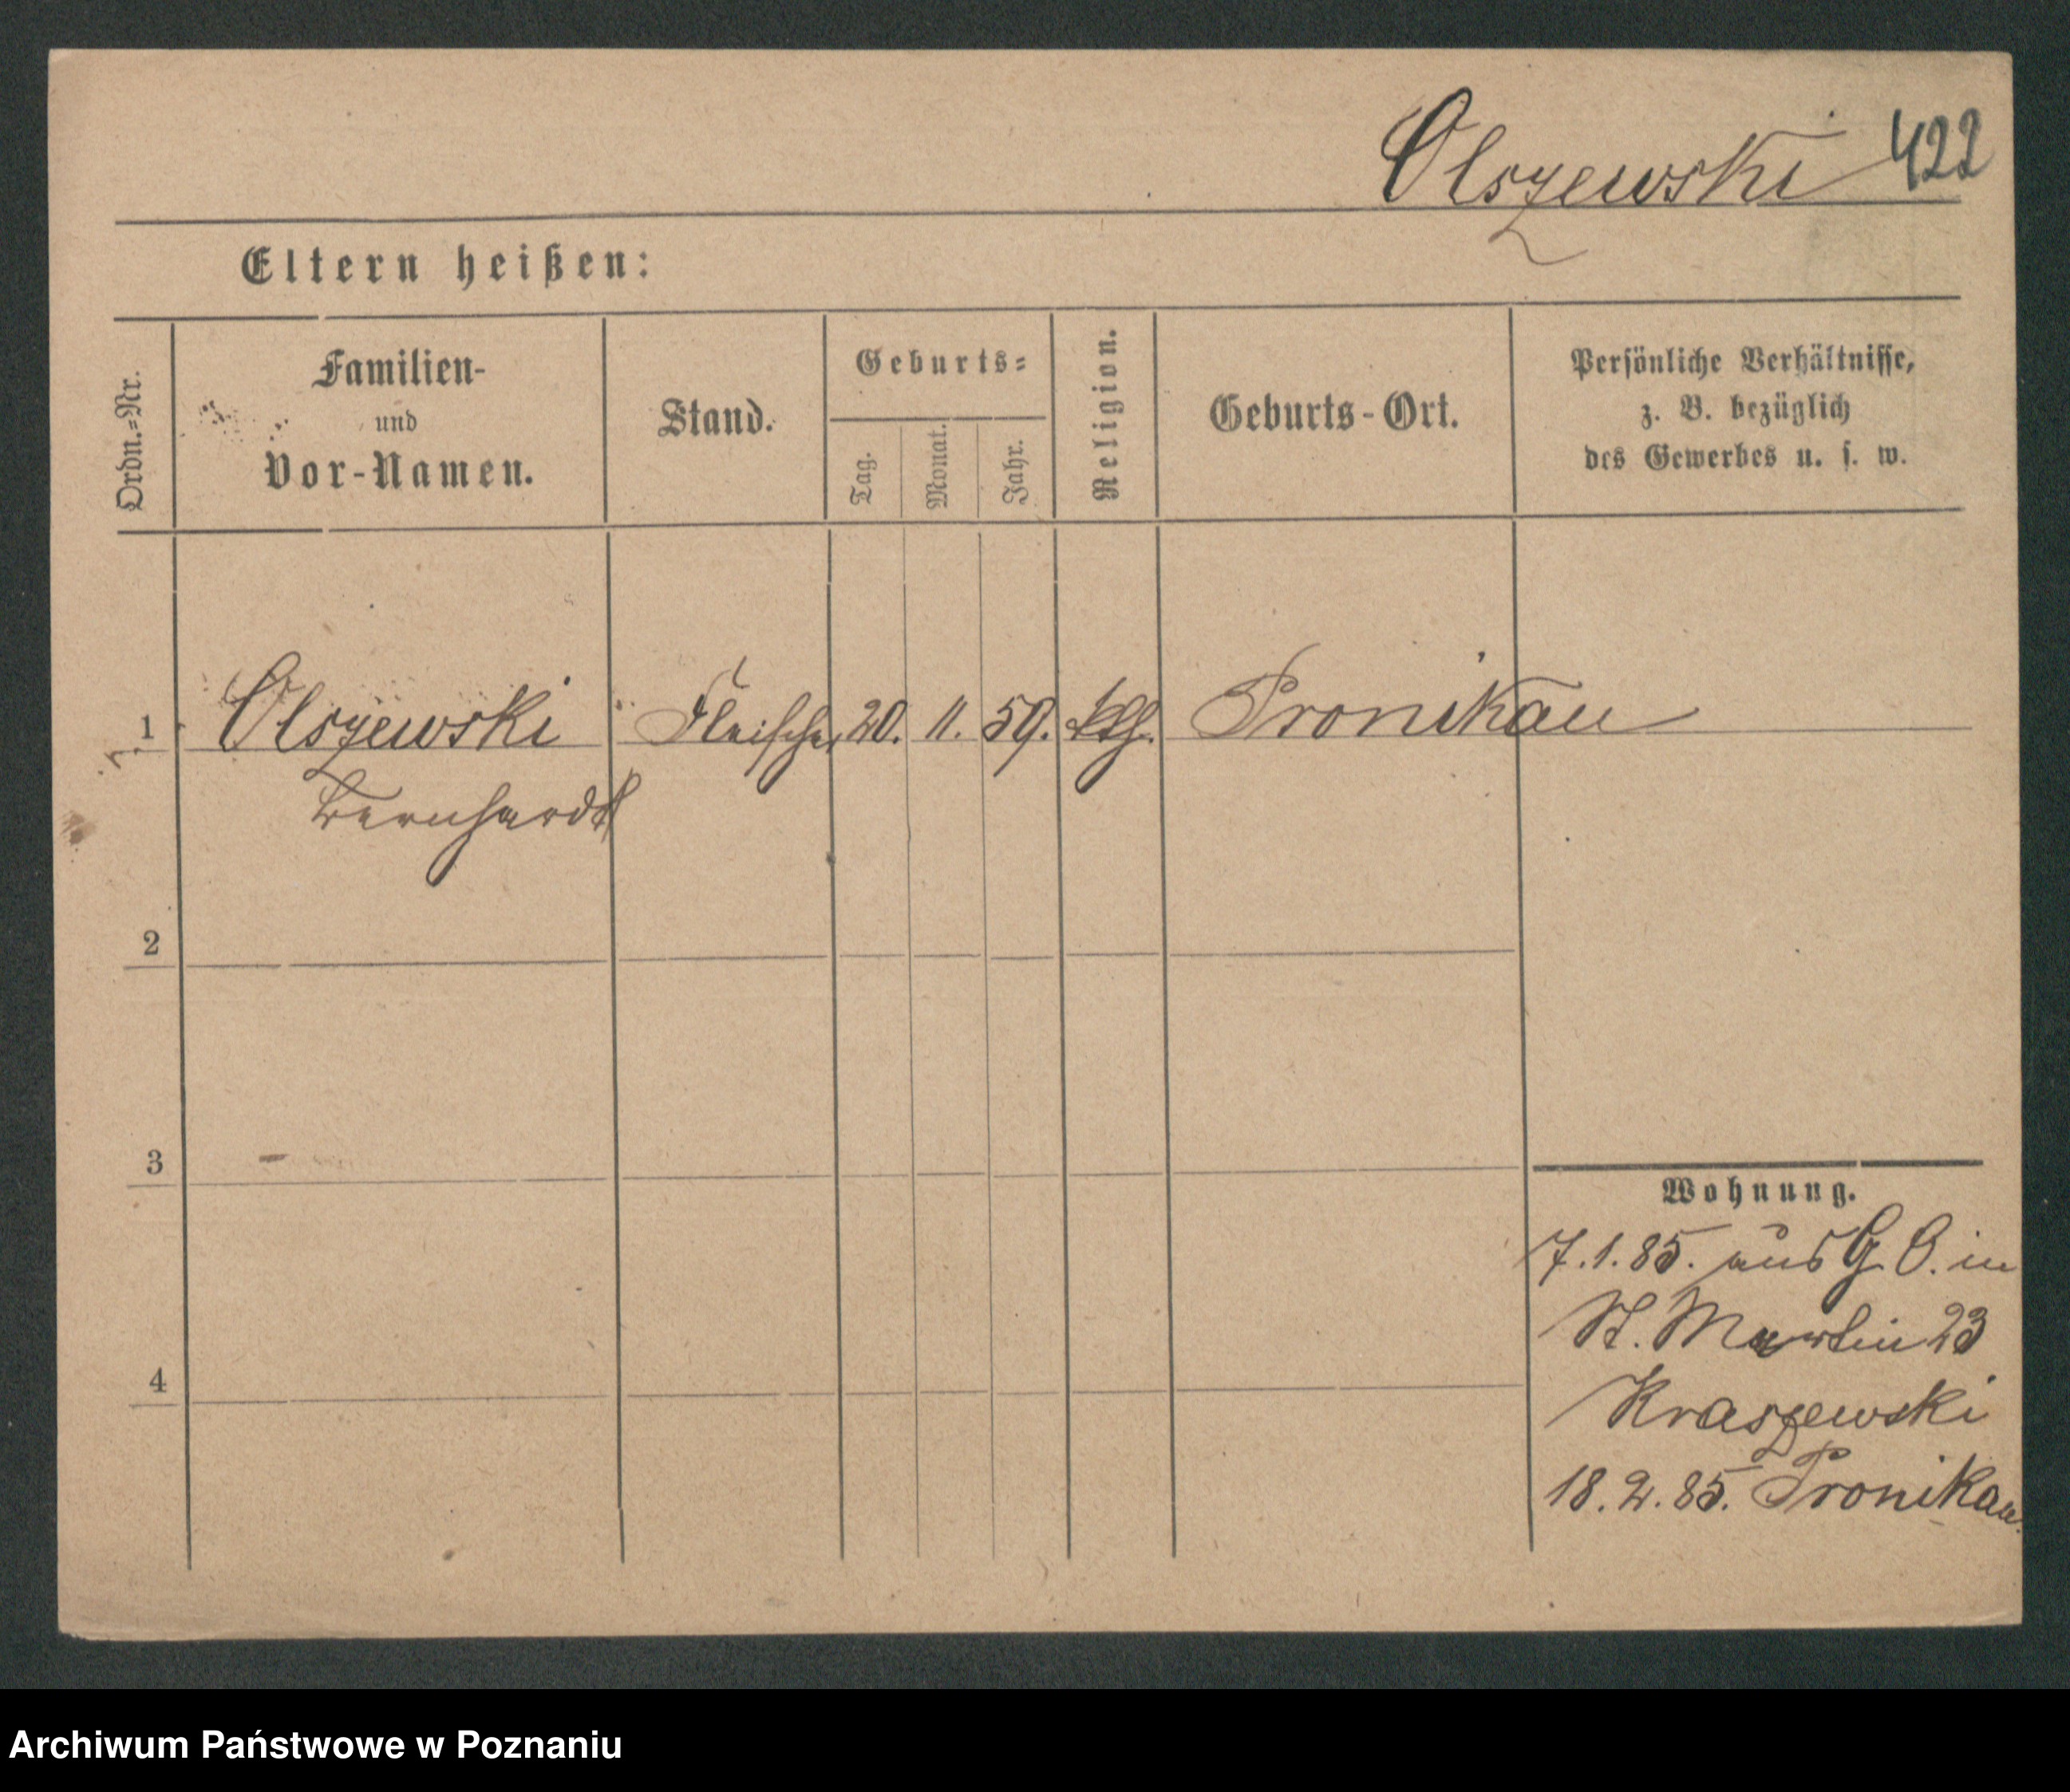 Olszewski 422
Eltern heißen:
Ordn.=Nr.
Familien-
und
Vor-Namen.
Stand.
Geburts=
Tag.
Monat.
Jahr.
Religion.
Geburts-Ort.
Persönliche Verhältnisse,
z. B. bezüglich
des Gewerbes u. s. w.
1 Olszewski Fleischer 20. 11. 59. kth. Pronikau
Bernhardt
2
3
4
Wohnung.
7.1.85. aus G. O. in
St. Martin 23
Kraszewski
18.2.85. Pronikau.
Archiwum Państwowe w Poznaniu